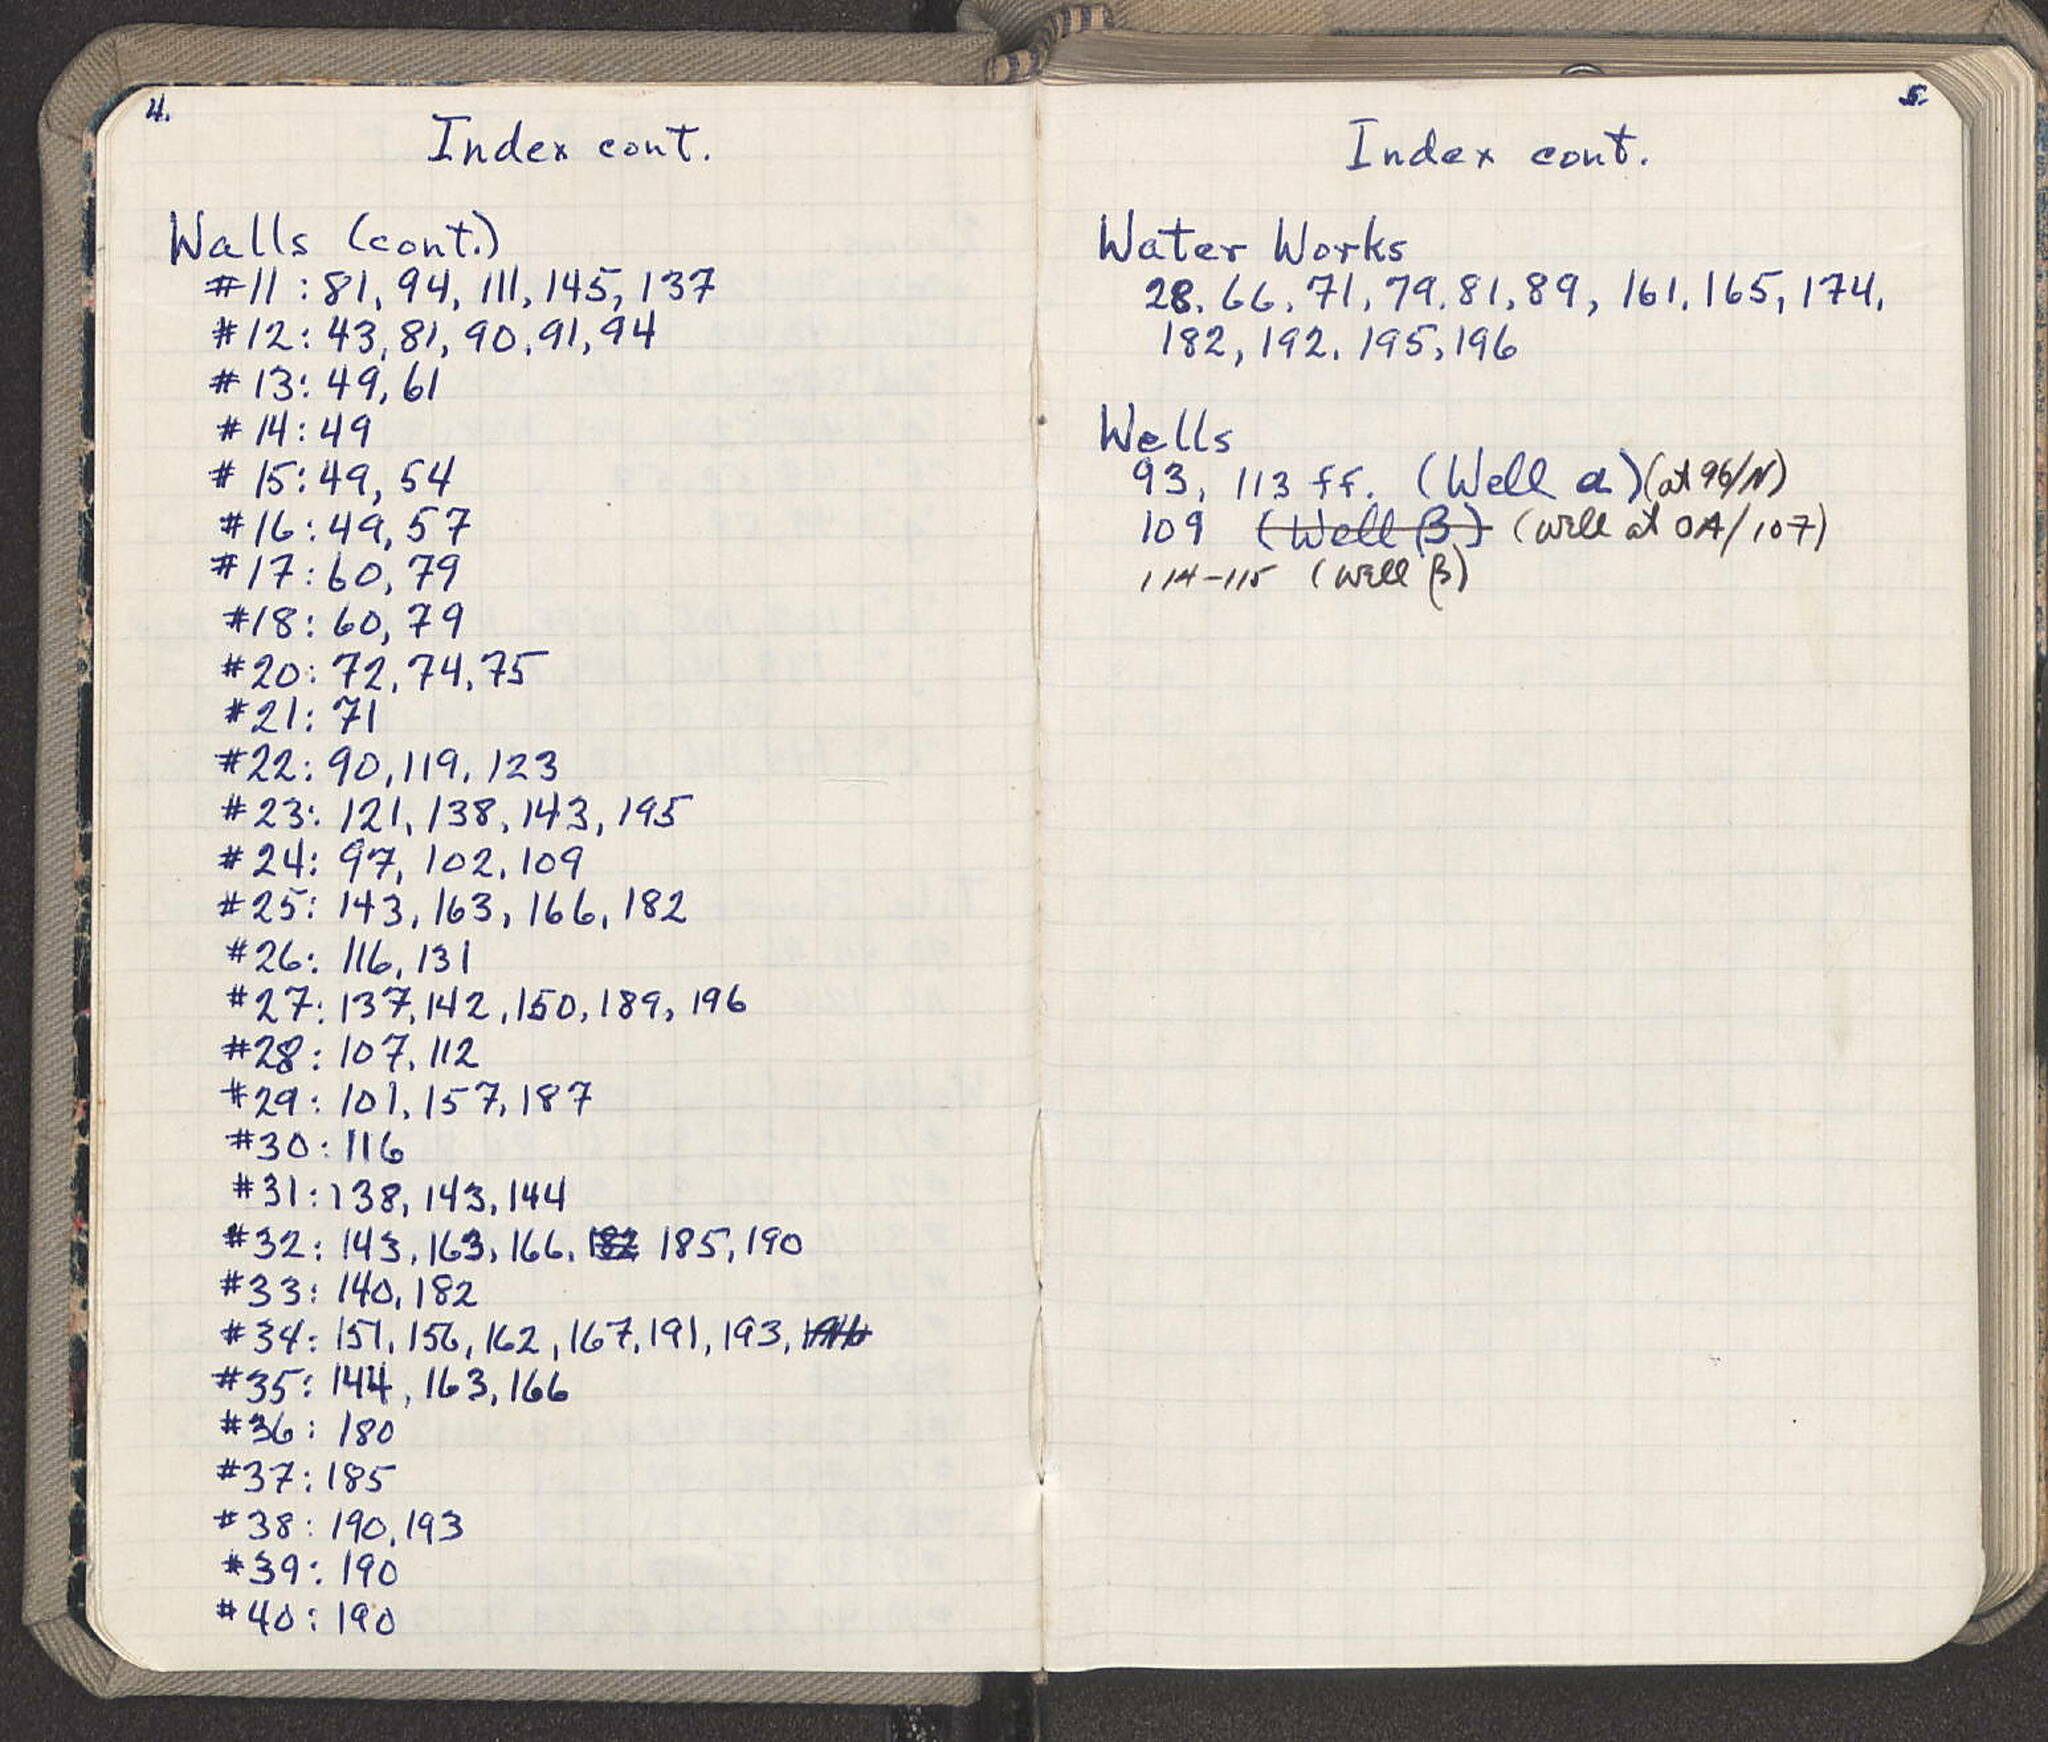 4.
Index cont.
Walls (cont.)
#11: 81, 94, 111, 145, 137
#12: 43, 81, 90, 91, 94
#13: 49, 61
#14: 49
#15: 49, 54
#16: 49, 57
#17: 60, 79
#18: 60, 79
#20: 72, 74, 75
#21: 71
#22: 90, 119, 123
#23: 121, 138, 143, 195
#24: 97, 102, 109
#25: 143, 163, 166, 182
#26: 116, 131
#27: 137, 142, 150, 189, 196
#28: 107, 112
#29: 101, 157, 187
#30: 116
#31: 138, 143, 144
#32: 143, 163, 166, 182 185, 190
#33: 140, 182
#34: 151, 156, 162, 167, 191, 193,
#35: 144, 163, 166
#36: 180
#37: 185
#38: 190, 193
#39: 190
#40: 190
5.
Index cont.
Water Works
28, 66, 71, 79, 81, 89, 161, 165, 174,
182, 192, 195, 196
Wells
93, 113 ff. (Well α) (at 96/N)
109 (Well β) (well at OA/107)
114-115 (well β)